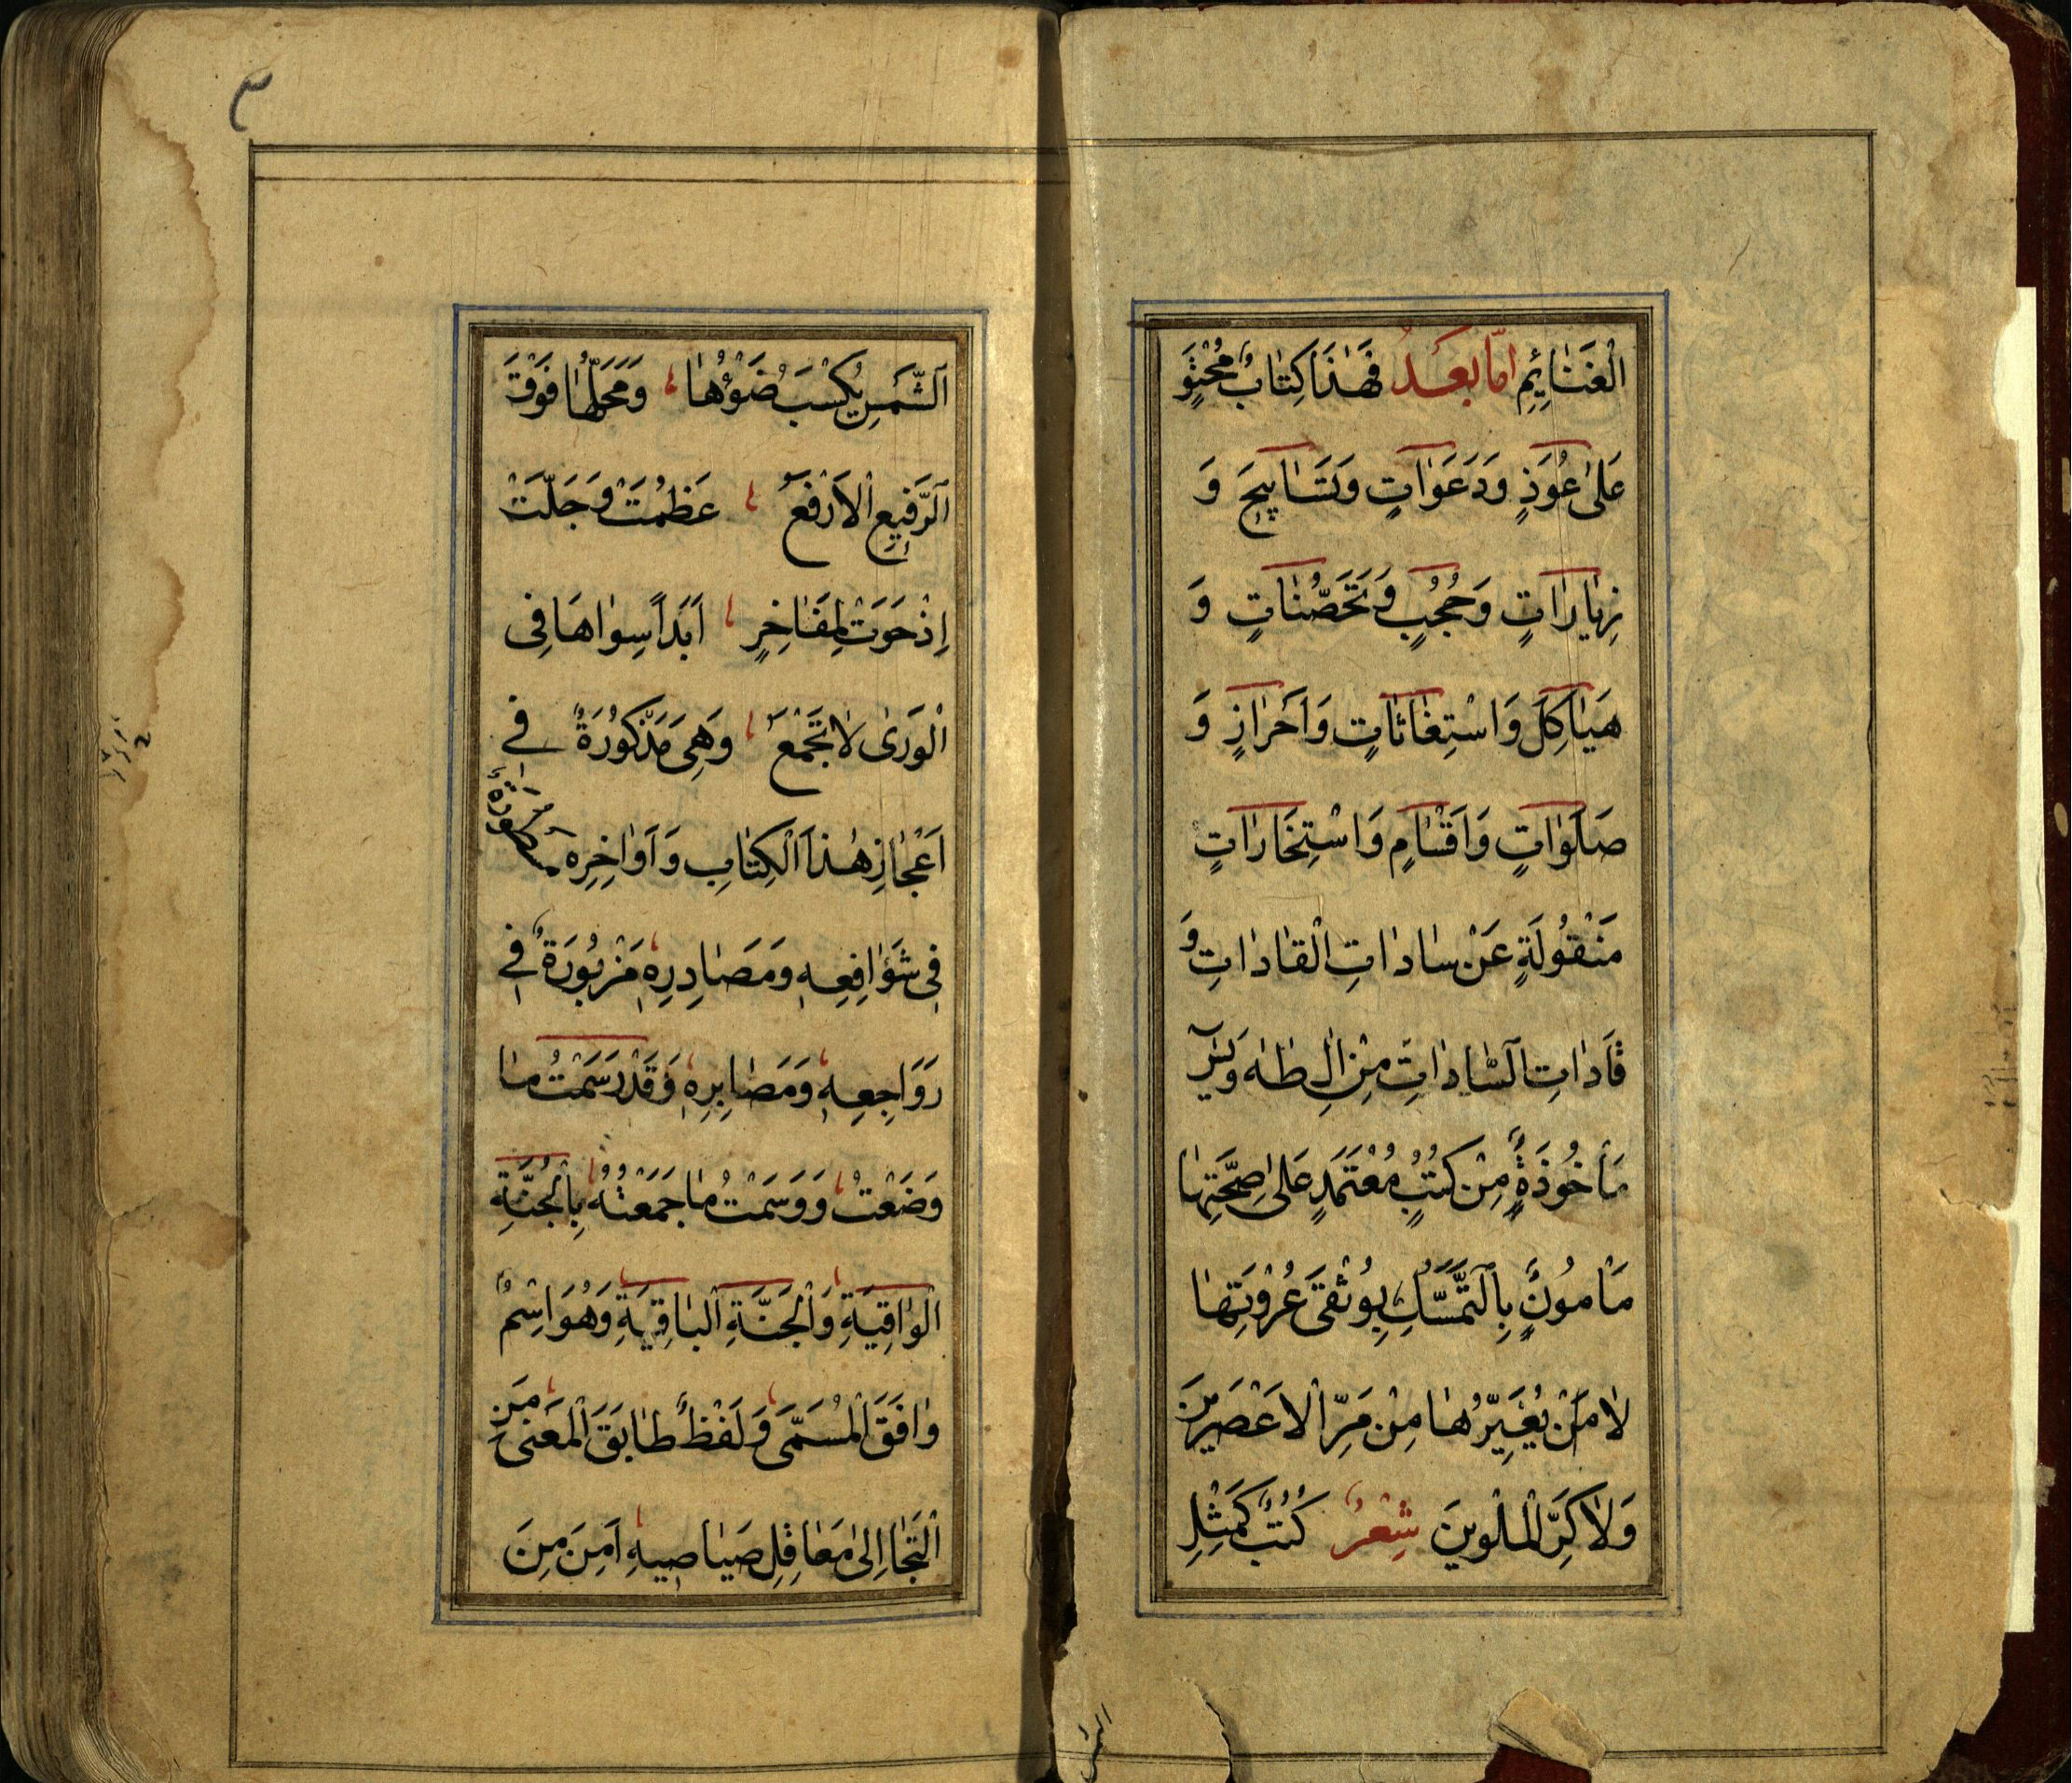 الْغَنَائِمِ اَمّا بَعْدُ فَهٰذَا كِتٰابٌ مُحْتَوٍ
عَلىٰ عُوَذٍ وَدَعَوٰاتٍ وَتَسٰابِيحَ وَ
زِيٰارٰاتٍ وَحُجُبٍ وَتَحَصُّنٰاتٍ وَ
هَيٰاكِلَ وَاسْتِغٰاثٰاتٍ وَاَحْرٰازٍ وَ
صَلَوٰاتٍ وَاَقْسٰامٍ وَاسْتِخٰارٰاتٍ
مَنْقُولَةٍ عَنْ سٰادٰاتِ الْقٰادٰاتِ وَ
قٰادٰاتِ السّٰادٰاتِ مِنْ اٰلِ طٰهٰ وَيٰسٓ
مَأخُوذَةٍ مِنْ كُتُبٍ مُعْتَمَدٍ عَلىٰ صِحَّتِهٰا
مَأْمُونٍ بِالتَّمَسُّكِ بِوُثْقىٰ عُرْوَتِهٰا
لٰا مَنْ يُغَيِّرُهٰا مِنْ مَرِّ الْاَعْصَرَيْنِ
وَلٰا كَرِّ الْمَلَوَيْنَ شِعْرٌ كُتُبٌ كَمِثْلِ
الشَّمْسِ يُكْسَبُ ضَوْؤُهٰا وَمَحَلُّهٰا فَوْقَ
الرَّفِيعِ الْاَرْفَعِ عَظُمَتْ وَجَلَّتْ
اِذْ حَوَتْ لِمَفٰاخِرٍ اَبَداً سِوٰاهَا فِى
الْوَرىٰ لٰا تَجْمَعُ وَهِىَ مَذْكُورَةٌ فِي
اَعْجٰازِ هٰذَا الْكِتٰابِ وَاَوٰاخِرِهِ مسفورة
فِى شَوٰافِعِهِ وَمَصٰادِرِهِ مَزْبُورَةٌ فِي
رَوَاجِعِهِ وَمَصٰابِرِهِ وَقَدْ رَسَمْتُ مٰا
وَضَعْتُ وَوَسَمْتُ مٰا جَمَعْتُهُ بِالْجُنَّةِ
الْوٰاقِيَةِ وَالْجَنَّةِ الْبٰاقِيَةِ وَهُوَ اسْمٌ
وٰافَقَ الْمُسَمَّى وَلَفْظٌ طٰابَقَ الْمَعْنىٰ مَنِ
الْتَجٰا اِلىٰ مَعٰاقِلِ صَيٰاصِيهِ اَمِنَ مِنَ
٣
الشمس